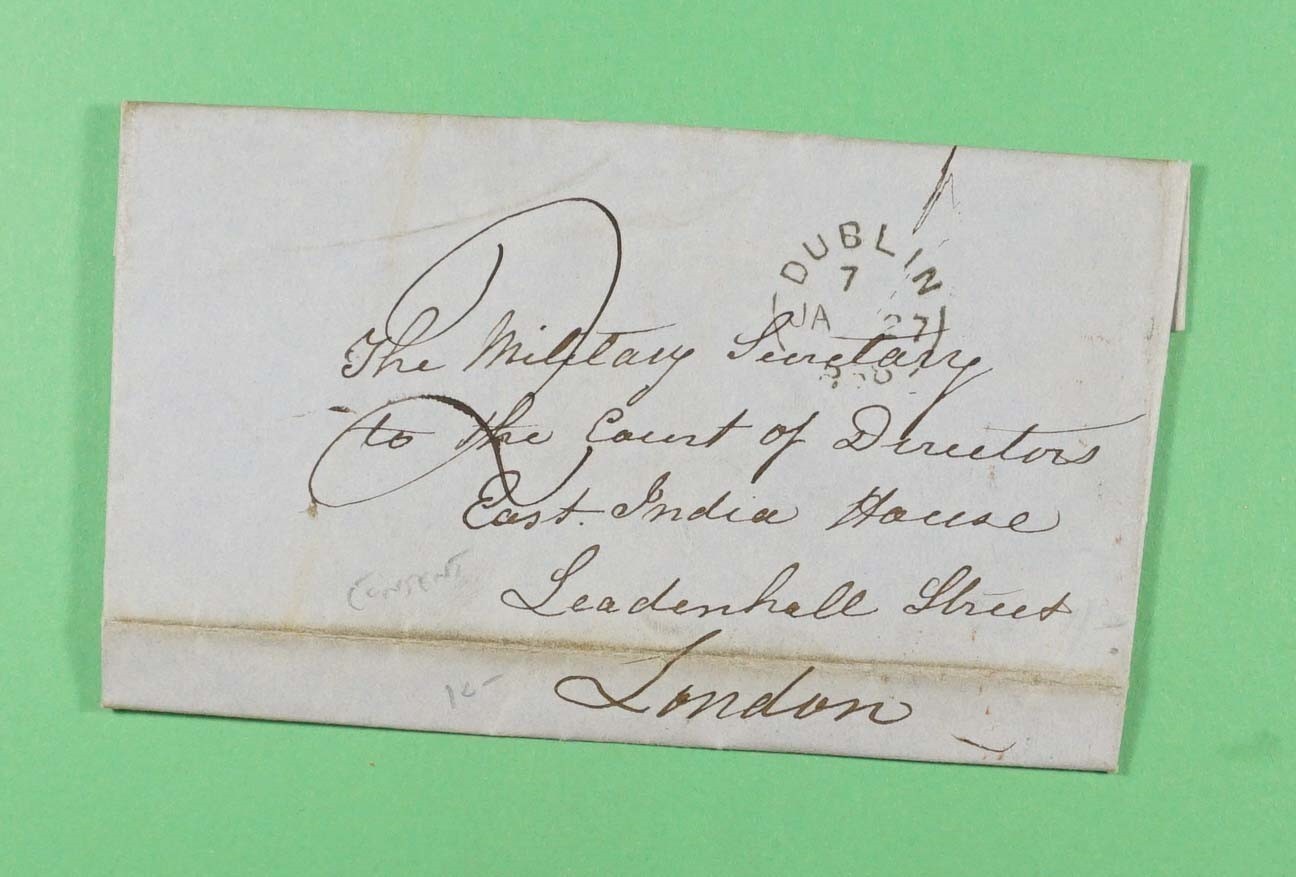 DUBLIN
7
JA 27
The Military Secretary
to the Court of Directors
East India House
Leadenhall Street
London
2